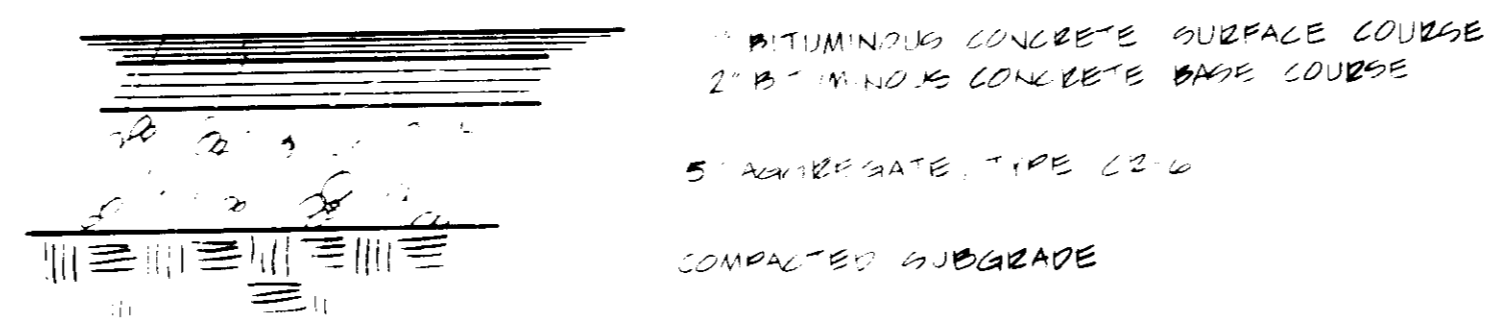 " BITUMINOUS CONCRETE SURFACE COURSE
2" BITUMINOUS CONCRETE BASE COURSE
5" AGGREGATE, TYPE
COMPACTED SUBGRADE